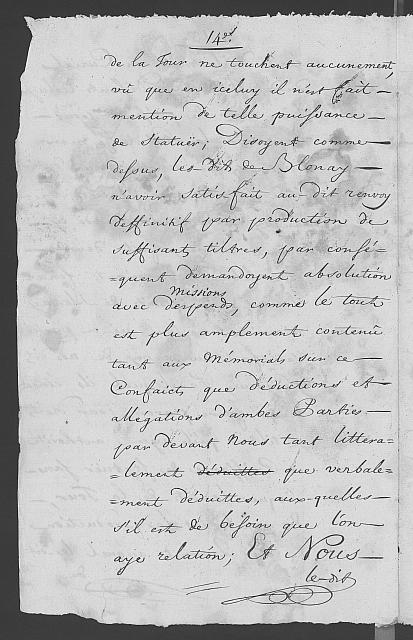 14.
de la Tour ne touchent aucunement,
vû que en iceluy il n'est fait
mention de telle puissance
de Statuër; Disoyent comme
dessus, les dit de Blonay
n'avoir satisfait au dit renvoy
deffinitif par production de
suffisants tiltres, par consé-
=quent demandoyent absolution
missions
avec despends, comme le tout
est plus amplement contenû
tant aux Mémorials sur ce
Confaicts que déductions et
allégations d'ambes Parties
par devant Nous tant littera-
=lement déduittes que verbale-
=ment déduittes, aux-quelles
s'il est de besoin que l'on
aye relatión; Et Nous
le dit